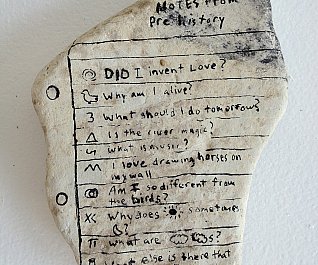 NOTES FROM
Pre History
DID I invent Love?
Why am I alive?
What should I do tomorrow?
Is the river magic?
what is music?
I love drawing horses on
my wall
Am I so different from
the birds?
Why does sometimes
?
what are s?
else is there that